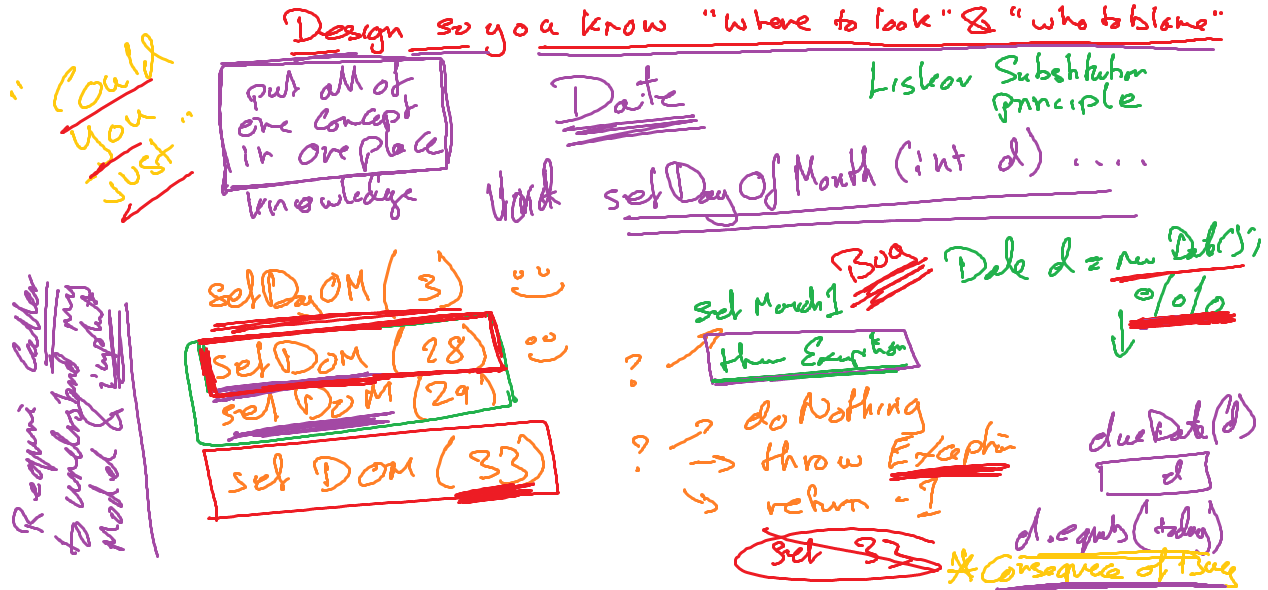 Design so you know "where to look" & "who to blame"
"Could
you
just"
put all of
one concept
in one place
knowledge
Date
Liskov Substitution
principle
void setDayOfMonth (int d) ....
Require Caller
to understand my
Model & inputs
setDayOM (3)
setDOM (28)
set DOM (29)
set DOM (33)
Bug
set March 1
throw Exception
?
?
do Nothing
throw Exception
return -1
set 33
Date d = new Date();
0/0/0
dueDate(d)
d
d.equals(today)
* Consequence of Bug